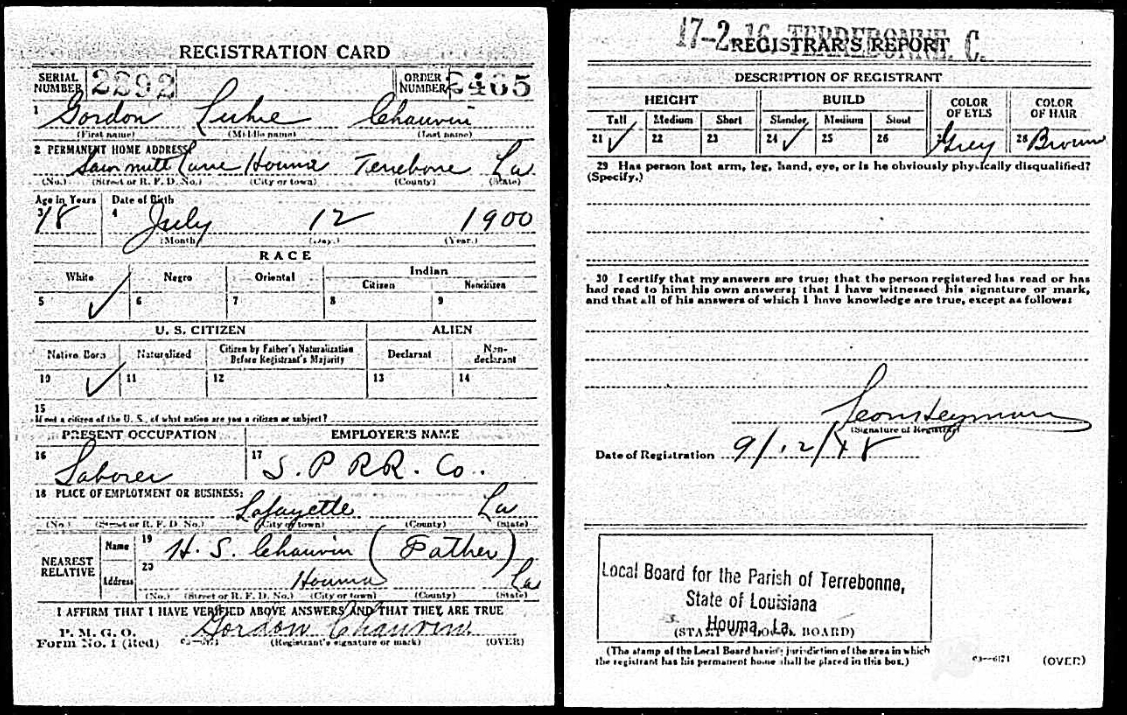 REGISTRATION CARD
SERIAL NUMBER 2292 ORDER NUMBER 3465
1 Gordon Chauvin
(First name) (Middle name) (Last name)
2 PERMANENT HOME ADDRESS
Saw mill Lane Houma Terrebone La
(No.) (Street or R. F. D. No.) (City or town) (County) (State)
Age in Years Date of Birth
3 18 4 July 12 1900
(Month) (Day.) (Year.)
RACE
White Negro Oriental Indian
Citizen Noncitizen
5 ✓ 6 7 8 9
U. S. CITIZEN ALIEN
Native Born Naturalized Citizen by Father's Naturalization Before Registrant's Majority Declarant Non-declarant
10 ✓ 11 12 13 14
15
If not a citizen of the U. S., of what nation are you a citizen or subject?
PRESENT OCCUPATION EMPLOYER'S NAME
16 Laborer 17 S. P RR. Co.
18 PLACE OF EMPLOYMENT OR BUSINESS:
Lafayette La
(No.) (Street or R. F. D. No.) (City or town) (County) (State)
NEAREST RELATIVE Name 19 H. S. Chauvin (Father)
Address 20 Houma La
(No.) (Street or R. F. D. No.) (City or town) (County) (State)
I AFFIRM THAT I HAVE VERIFIED ABOVE ANSWERS AND THAT THEY ARE TRUE
P. M. G. O.
Form No. 1 (Red) 03—6171 Gordon Chauvin (Registrant's signature or mark) (OVER)
17-2-16 TERREBONNE. C.
REGISTRAR'S REPORT
DESCRIPTION OF REGISTRANT
HEIGHT BUILD COLOR OF EYES COLOR OF HAIR
Tall Medium Short Slender Medium Stout
21 ✓ 22 23 24 ✓ 25 26 27 Grey 28 Brown
29 Has person lost arm, leg, hand, eye, or is he obviously physically disqualified?
(Specify.)
30 I certify that my answers are true; that the person registered has read or has
had read to him his own answers; that I have witnessed his signature or mark,
and that all of his answers of which I have knowledge are true, except as follows:
(Signature of Registrar)
Date of Registration 9/12/18
Local Board for the Parish of Terrebonne,
State of Louisiana
Houma, La.
(STAMP OF LOCAL BOARD)
(The stamp of the Local Board having jurisdiction of the area in which
the registrant has his permanent home shall be placed in this box.)
03—6171 (OVER)